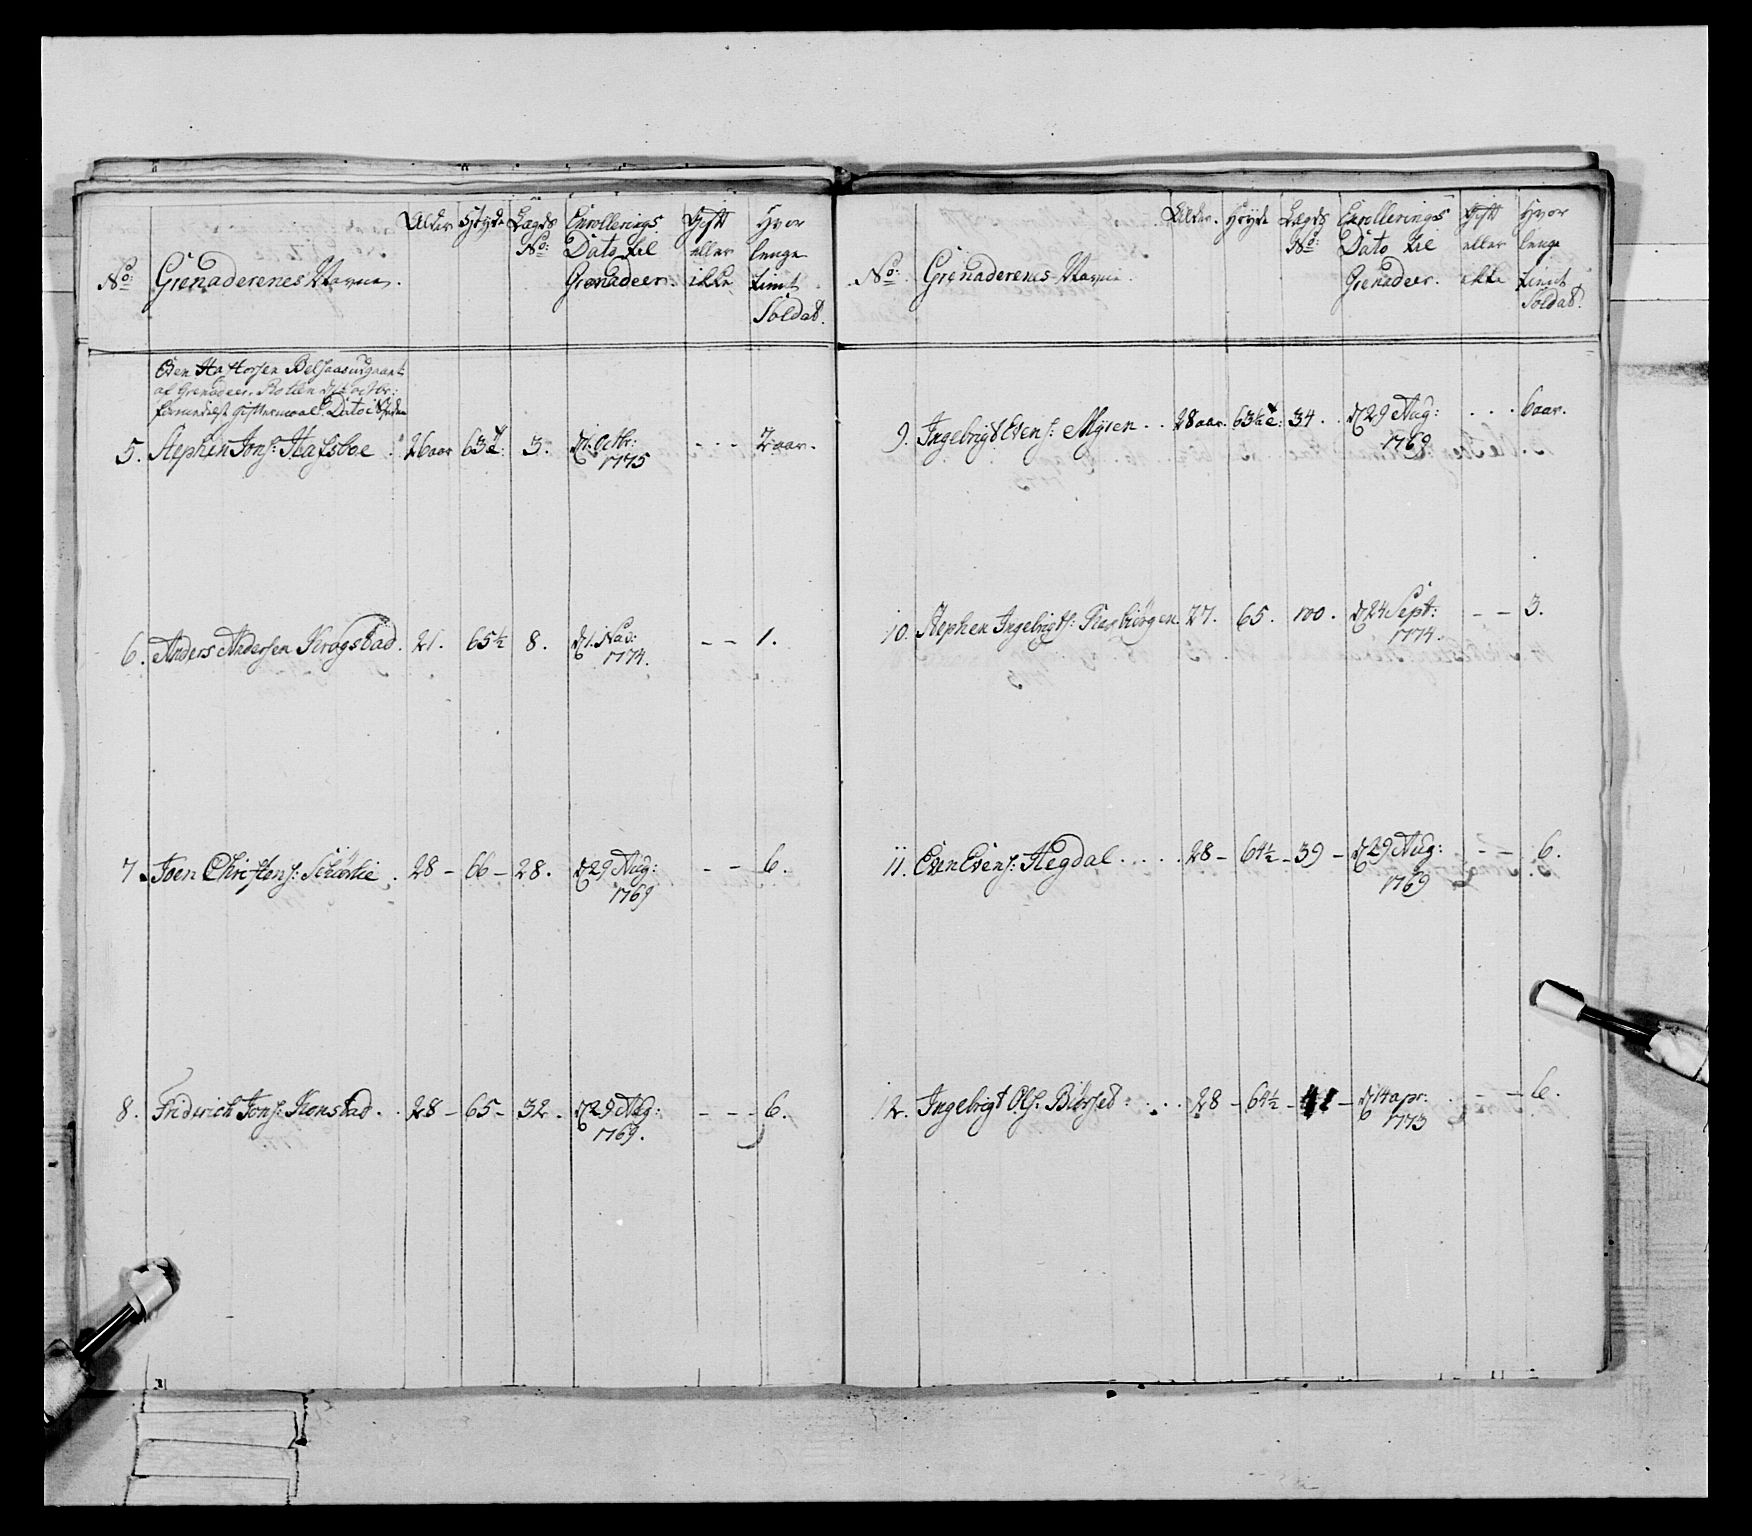 No: Grenaderenes Navne. Alder Høyde Lægds No: Enrollerings Dato til Grenadeer. Gift eller ikke Hvor lenge tient Soldat.
Even Hastorsen Belsaas udgaaet
af Grenadeer Rollen d 1 octbr:
formedelst giftermaal. Dato
5. Stephen Jons: Hafsboe 26 aar 63 3. d 1. Octbr: 1775 - - - 2 aar.
6. Anders Andersen Krogstad. 21. 65½ 8. d 1. Nov: 1774. - - 1.
7. Joen Christens: Schirlie. 28 - 66 - 28. d 29 Aug: 1769 - - 6.
8. Friderich Jons: Konstad. 28 - 65 - 32. d 29 Aug: 1769. - - - 6.
No: Grenaderenes Navne. Alder. Høyde Lægds No: Enrollerings Dato til Grenadeer. Gift eller ikke Hvor lenge tient Soldat.
9. Ingebrigt Evens: Myren 28 aar. 63½ 34. d 29 Aug: 1769 . . . 6 aar.
10. Stephen Ingebrigts: 27. 65. 100. d 24 Sept: 1774. - - 3.
11. Even Evens: Hegdal 28 - 64½ - 39 - d 29 Aug: 1769 - - 6.
12. Ingebrigt Ols: Biørset 28 - 64½ - 41 - d 14 apr: 1773 - - 6.